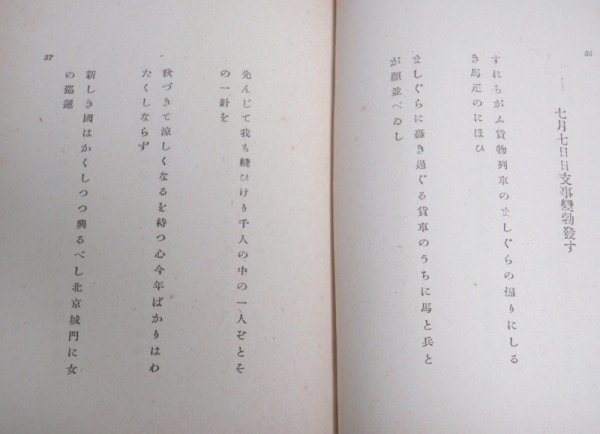 56
七月七日日支事變勃發す
すれちがふ貨物列車のましぐらの煽りにしる
き馬疋のにほひ
ましぐらに轟き過ぐる貨車のうちに馬と兵と
が顔並べゐし
先んじて我も縫ひけり千人の中の一人ぞとそ
の一針を
秋づきて涼しくなるを待つ心今年ばかりはわ
たくしならず
新しき國はかくしつつ興るべし北京城門に女
の巡邏
57